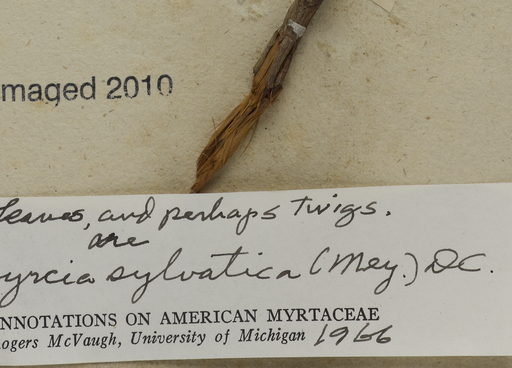 maged 2010
leaves, and perhaps twigs.
are
yrcia sylvatica (Mey.) DC.
NNOTATIONS ON AMERICAN MYRTACEAE
ogers McVaugh, University of Michigan 1966